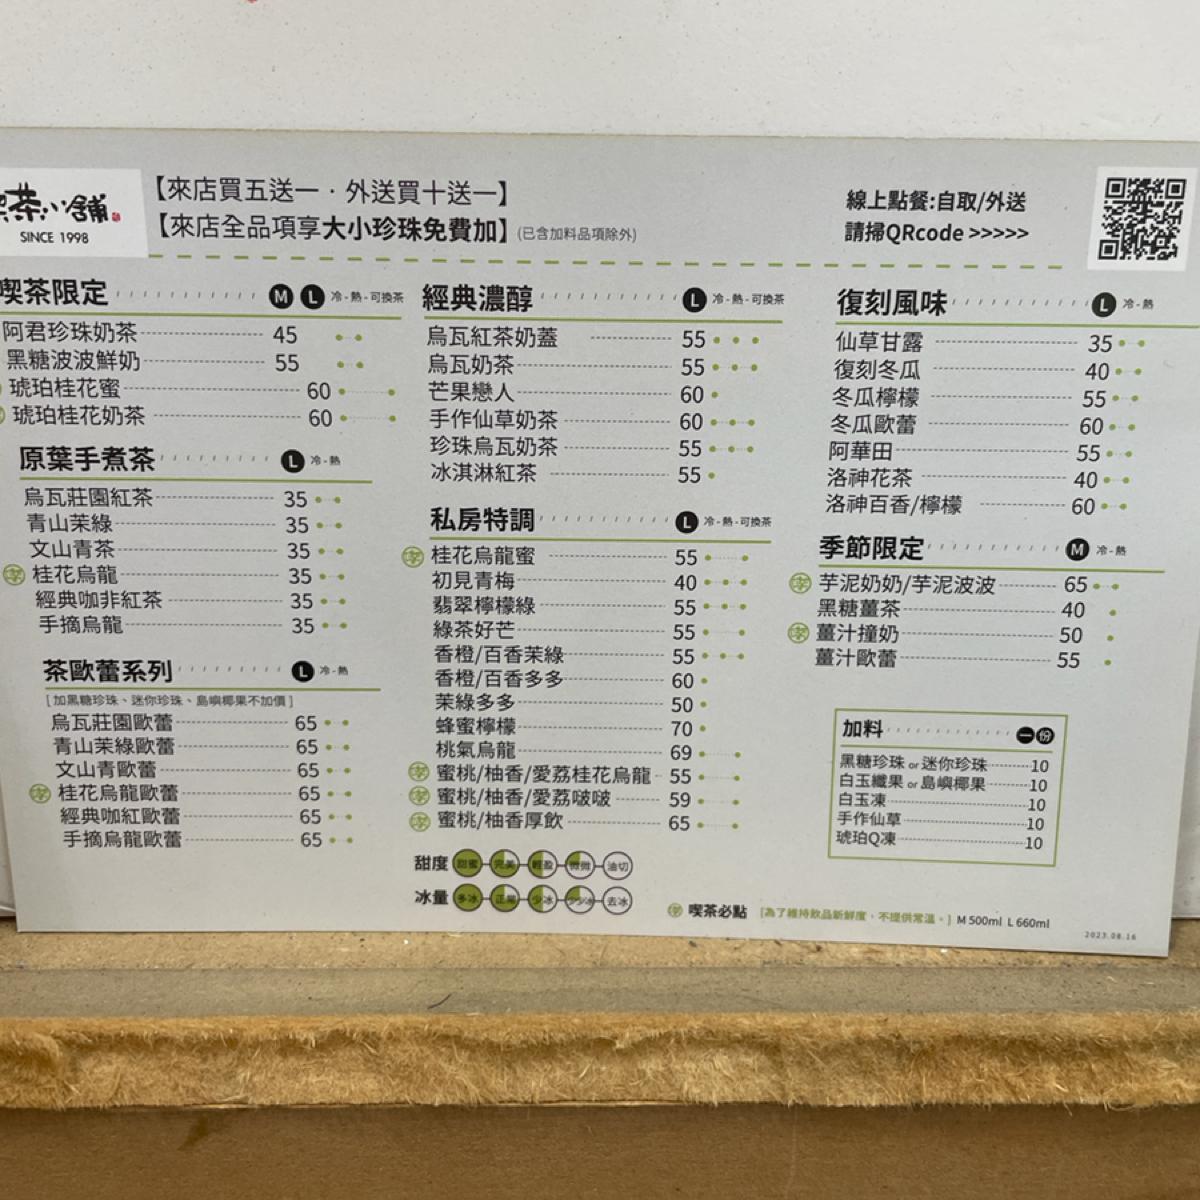 喫茶小舖
SINCE 1998
【來店買五送一．外送買十送一】
【來店全品項享大小珍珠免費加】(已含加料品項除外)
線上點餐:自取/外送
請掃QRcode >>>>>
喫茶限定 M L 冷-熱-可換茶
阿君珍珠奶茶 45
黑糖波波鮮奶 55
琥珀桂花蜜 60
琥珀桂花奶茶 60
原葉手煮茶 L 冷-熱
烏瓦莊園紅茶 35
青山茉綠 35
文山青茶 35
桂花烏龍 35
經典咖非紅茶 35
手摘烏龍 35
茶歐蕾系列 L 冷-熱
[加黑糖珍珠、迷你珍珠、島嶼椰果不加價]
烏瓦莊園歐蕾 65
青山茉綠歐蕾 65
文山青歐蕾 65
桂花烏龍歐蕾 65
經典咖紅歐蕾 65
手摘烏龍歐蕾 65
經典濃醇 L 冷-熱-可換茶
烏瓦紅茶奶蓋 55
烏瓦奶茶 55
芒果戀人 60
手作仙草奶茶 60
珍珠烏瓦奶茶 55
冰淇淋紅茶 55
私房特調 L 冷-熱-可換茶
桂花烏龍蜜 55
初見青梅 40
翡翠檸檬綠 55
綠茶好芒 55
香橙/百香茉綠 55
香橙/百香多多 60
茉綠多多 50
蜂蜜檸檬 70
桃氣烏龍 69
蜜桃/柚香/愛荔桂花烏龍 55
蜜桃/柚香/愛荔啵啵 59
蜜桃/柚香厚飲 65
甜度 甜蜜 完美 輕盈 微微 油切
冰量 多冰 正常 少冰 少少冰 去冰
復刻風味 L 冷-熱
仙草甘露 35
復刻冬瓜 40
冬瓜檸檬 55
冬瓜歐蕾 60
阿華田 55
洛神花茶 40
洛神百香/檸檬 60
季節限定 M 冷-熱
芋泥奶奶/芋泥波波 65
黑糖薑茶 40
薑汁撞奶 50
薑汁歐蕾 55
加料 一份
黑糖珍珠 or 迷你珍珠 10
白玉纖果 or 島嶼椰果 10
白玉凍 10
手作仙草 10
琥珀Q凍 10
喫茶必點 [為了維持飲品新鮮度，不提供常溫。] M 500ml L 660ml
2023.08.16